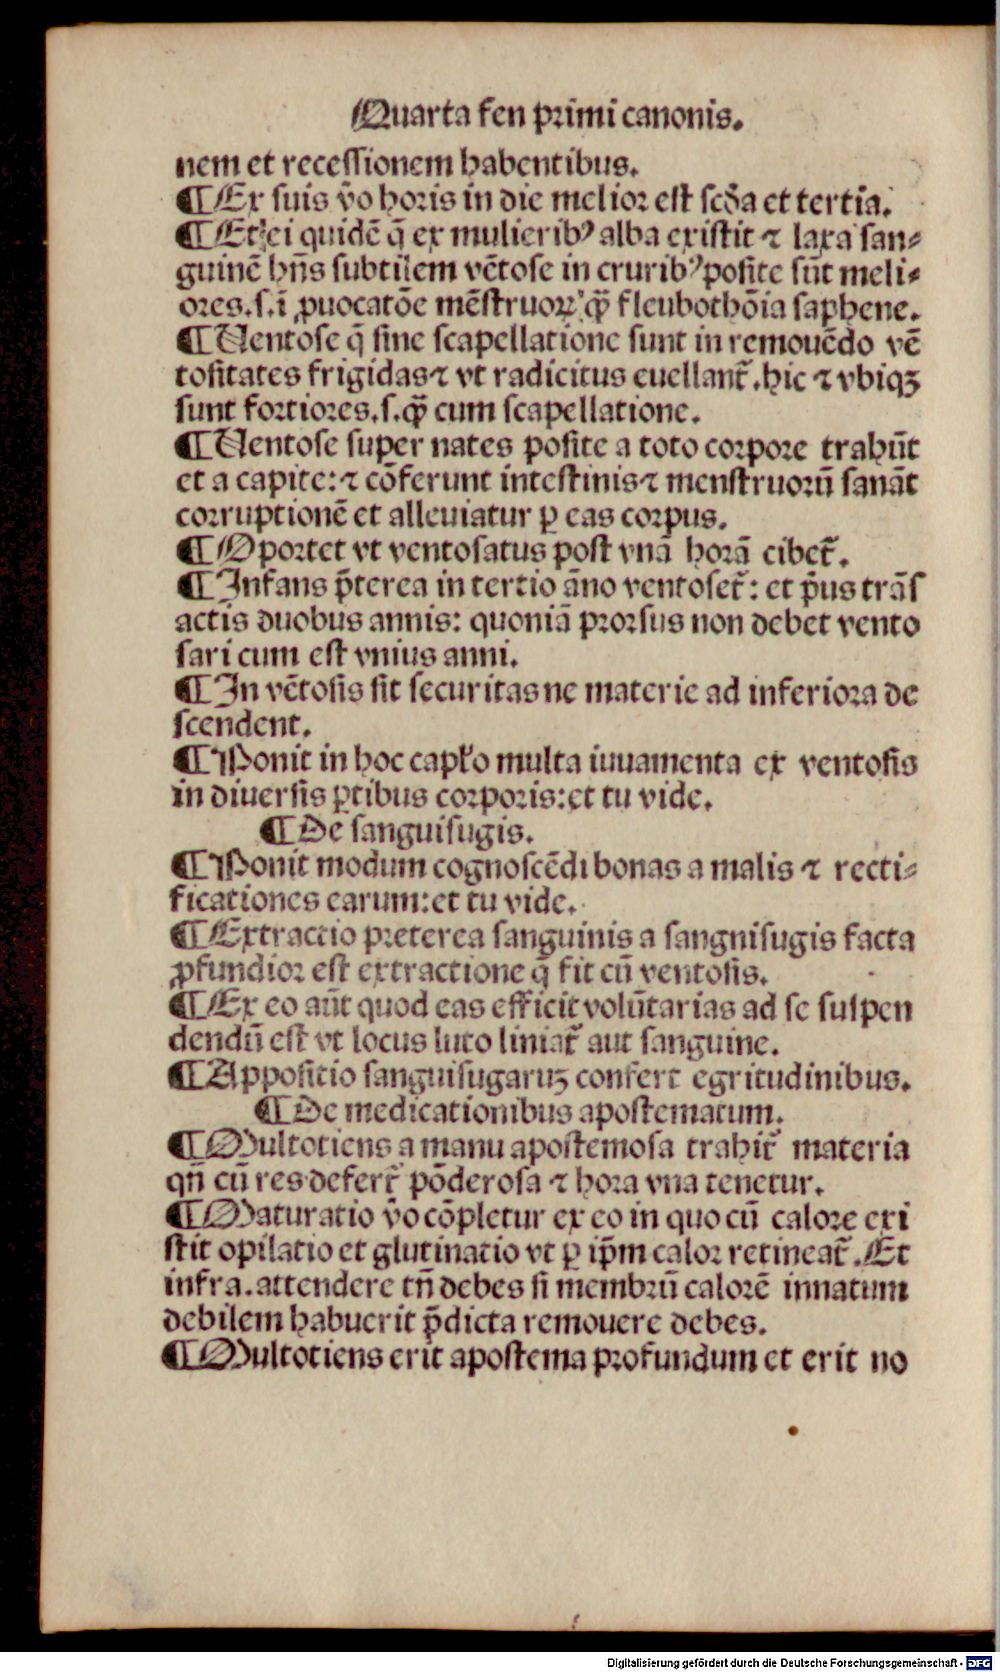 Quarta fen primi canonis.
nem et recessionem habentibus.
¶Ex suis v̄o horis in die melior est scd̄a et tertia.
¶Et ei quidē q̄ ex mulieribꝰ alba existit ⁊ laxa san⸗
guinē hn̄s subtilem vētose in cruribꝰ posite sūt meli⸗
ores.s.ī ꝓuocatōe mēstruoꝝ ꝙ̄ fleubothōia saphene.
¶Ventose q̄ sine scapellatione sunt in remouēdo vē
tositates frigidas ⁊ vt radicitus euellant̄.hic ⁊ vbiqꝫ
sunt fortiores.s.ꝙ̄ cum scapellatione.
¶Ventose super nates posite a toto corpore trahūt
et a capite:⁊ cōferunt intestinis ⁊ menstruorū sanāt
corruptionē et alleuiatur ꝑ eas corpus.
¶Oportet vt ventosatus post vnā horā cibet̄.
¶Infans p̄terea in tertio āno ventoset̄: et p̄us trās
actis duobus annis: quoniā prorsus non debet vento
sari cum est vnius anni.
¶In vētosis sit securitas ne materie ad inferiora de
scendent.
¶Ponit in hoc capl̓o multa iuuamenta ex ventosis
in diuersis ꝑtibus corporis:et tu vide.
¶De sanguisugis.
¶Ponit modum cognoscēdi bonas a malis ⁊ recti⸗
ficationes earum:et tu vide.
¶Extractio preterea sanguinis a sangnisugis facta
ꝓfundior est extractione q̄ fit cū ventosis.
¶Ex eo aūt quod eas efficit volūtarias ad se suspen
dendū est vt locus luto liniat̄ aut sanguine.
¶Appositio sanguisugaruꝫ confert egritudinibus.
¶De medicationibus apostematum.
¶Multotiens a manu apostemosa trahit̄ materia
qn̄ cū res defert̄ pōderosa ⁊ hora vna tenetur.
¶Maturatio v̄o cōpletur ex eo in quo cū calore exi
stit opilatio et glutinatio vt ꝑ ip̄m calor retineat̄.Et
infra.attendere tn̄ debes si membrū calorē innatum
debilem habuerit p̄dicta remouere debes.
¶Multotiens erit apostema profundum et erit no
Digitalisierung gefördert durch die Deutsche Forschungsgemeinschaft - DFG